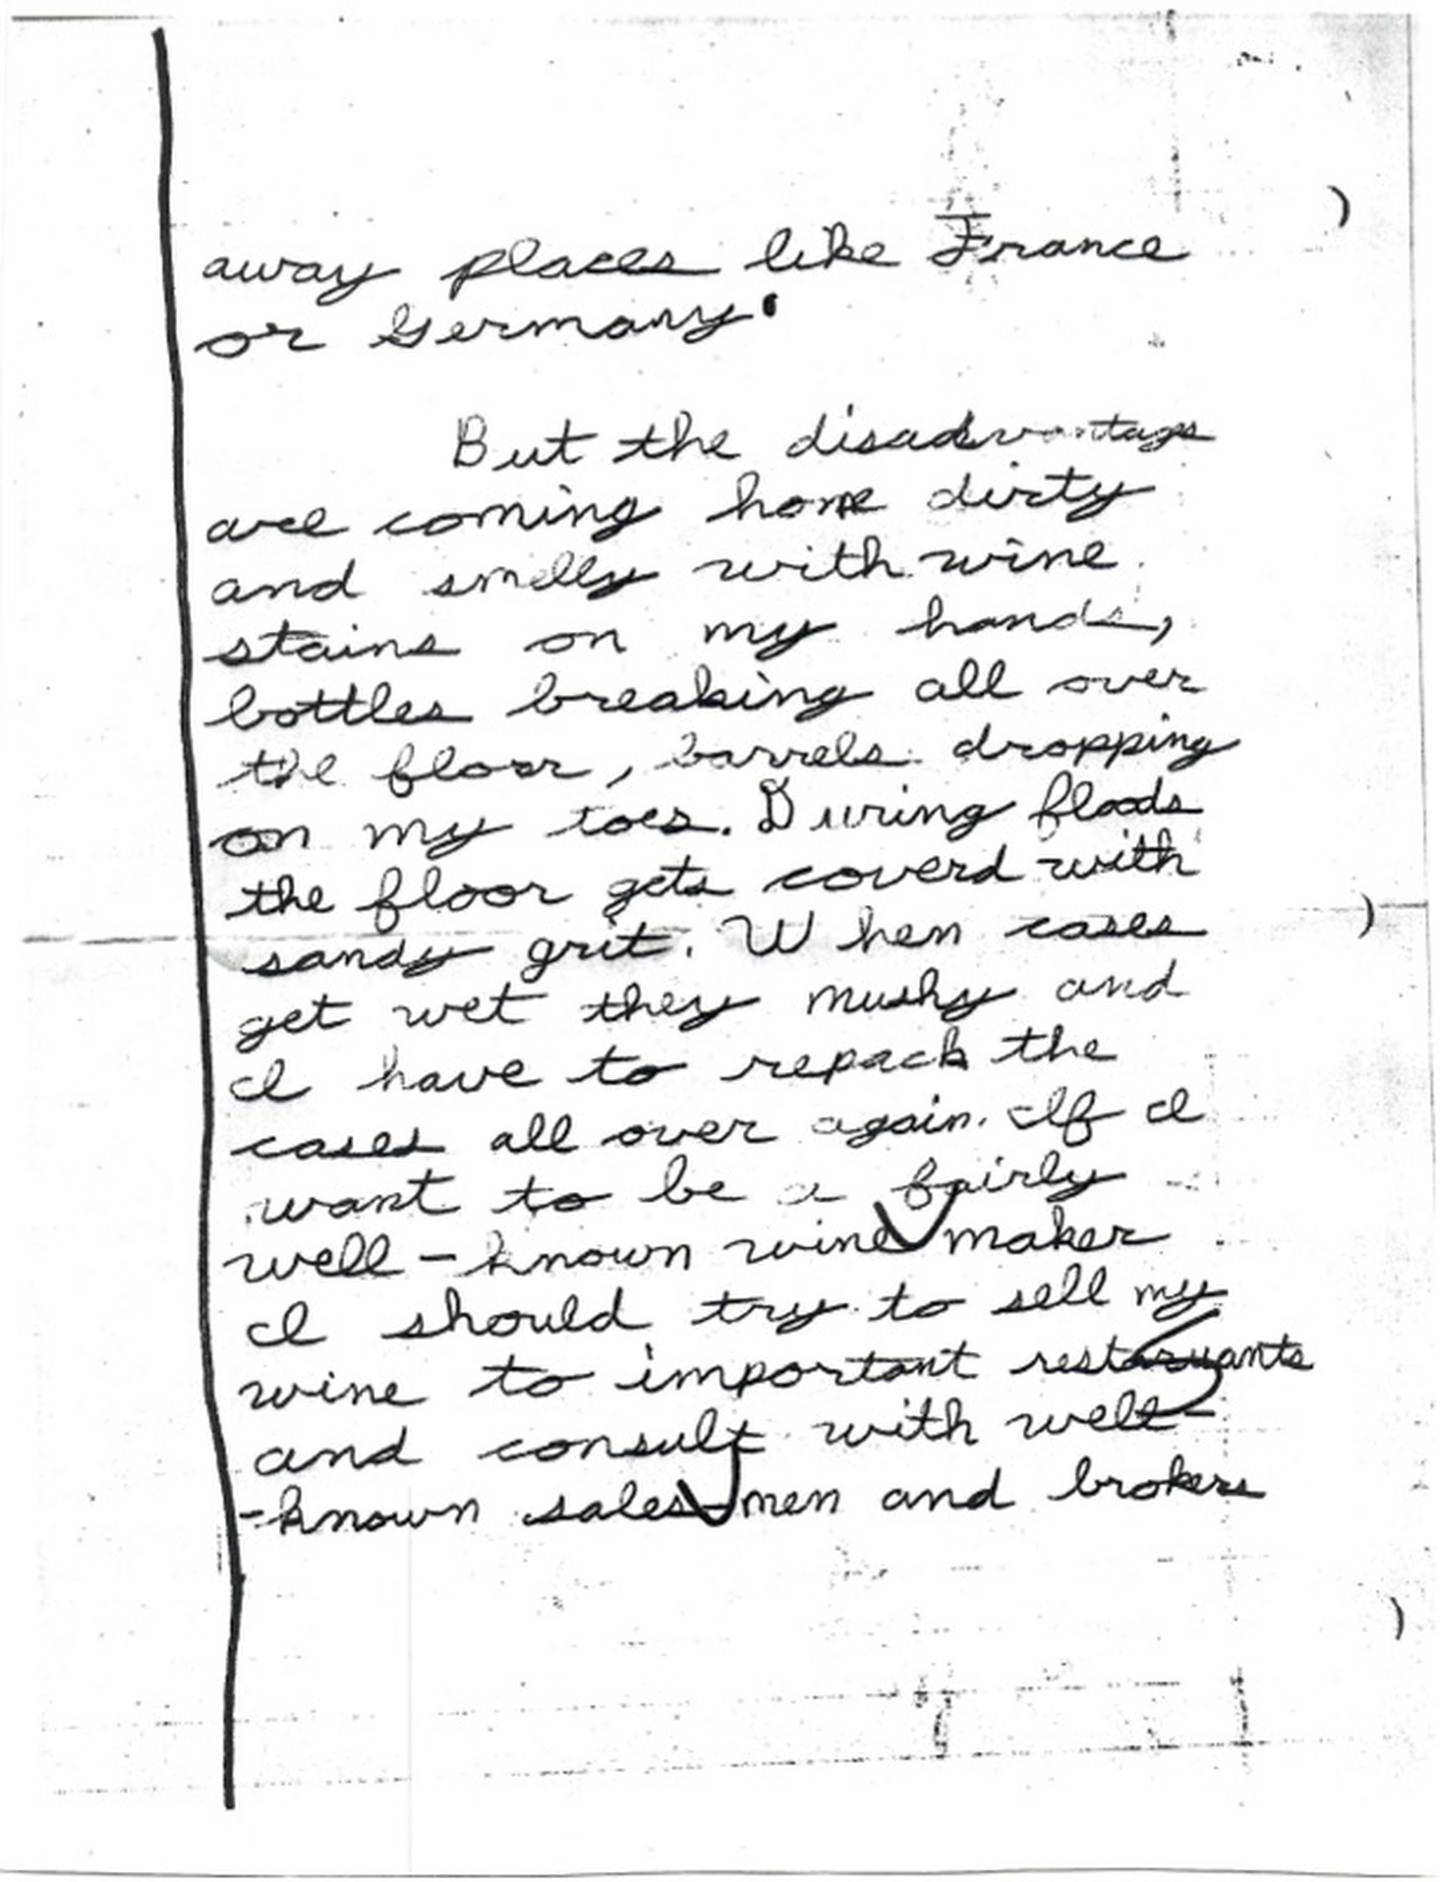 away places like France
or Germany.
But the disadvantages
are coming home dirty
and smelly with wine
stains on my hands,
bottles breaking all over
the floor, barrels dropping
on my toes. During floods
the floor gets coverd with
sandy grit. When cases
get wet they mushy and
I have to repack the
cases all over again. If I
want to be a fairly
well-known wine maker
I should try to sell my
wine to important restaruants
and consult with well-
-known sales-men and brokers